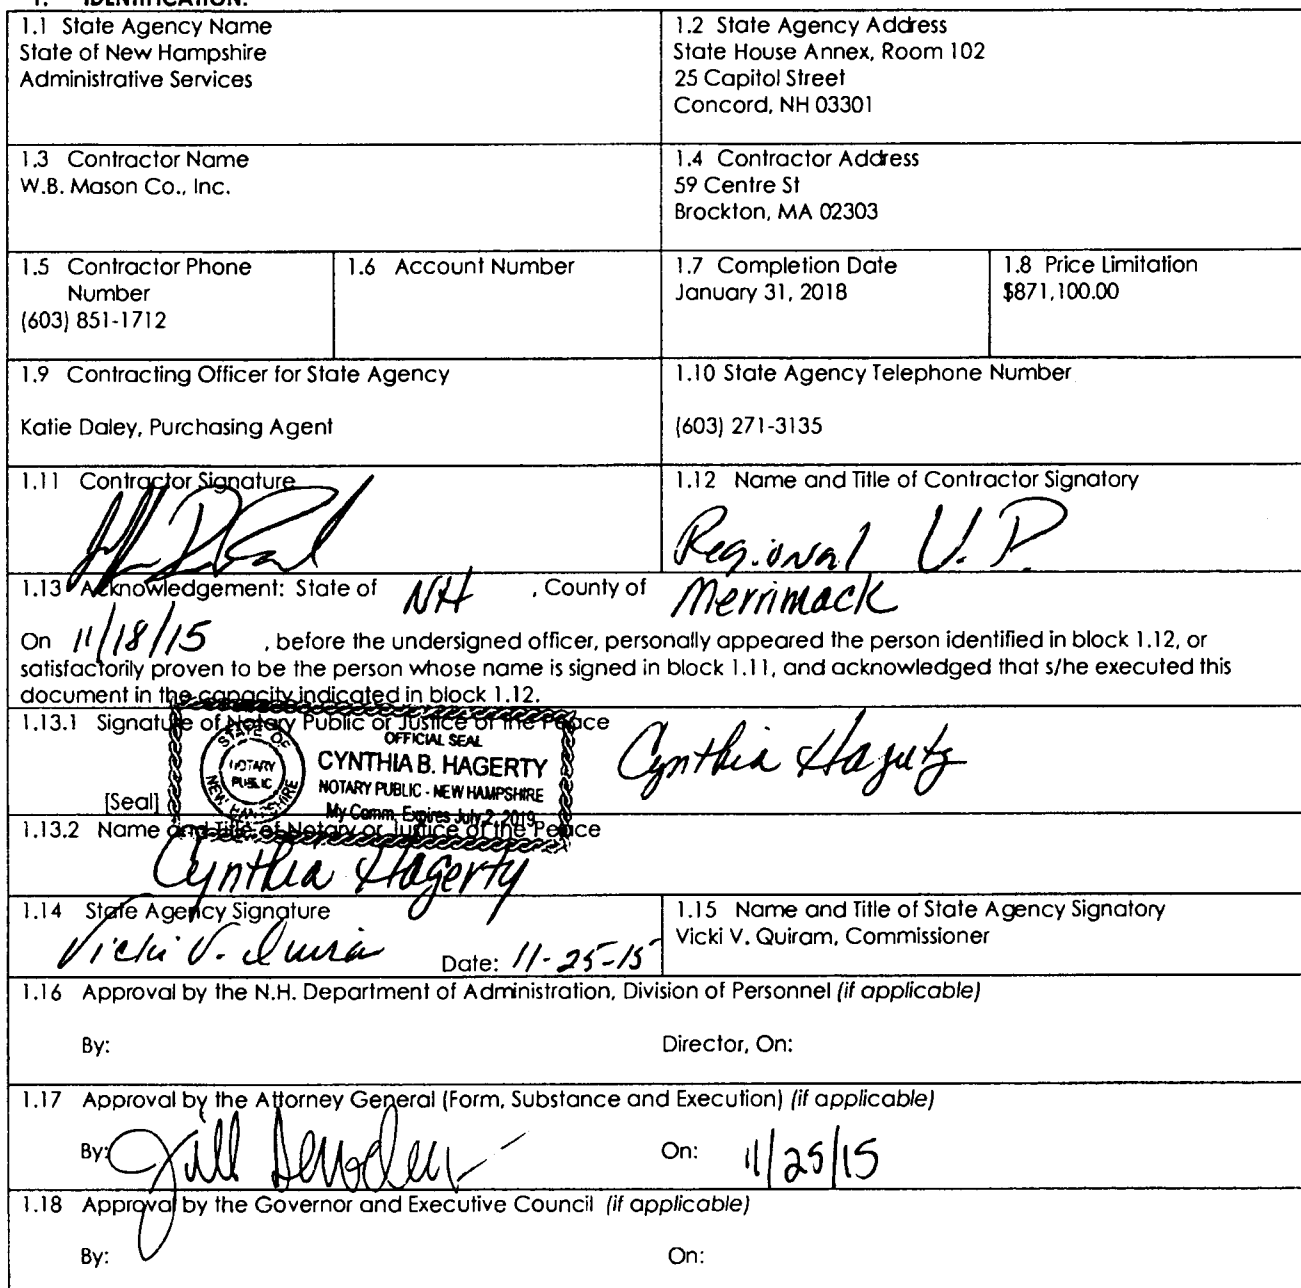 1. IDENTIFICATION.
1.1 State Agency Name
State of New Hampshire
Administrative Services
1.2 State Agency Address
State House Annex, Room 102
25 Capitol Street
Concord, NH 03301
1.3 Contractor Name
W.B. Mason Co., Inc.
1.4 Contractor Address
59 Centre St
Brockton, MA 02303
1.5 Contractor Phone
Number
(603) 851-1712
1.6 Account Number
1.7 Completion Date
January 31, 2018
1.8 Price Limitation
$871,100.00
1.9 Contracting Officer for State Agency
Katie Daley, Purchasing Agent
1.10 State Agency Telephone Number
(603) 271-3135
1.11 Contractor Signature
1.12 Name and Title of Contractor Signatory
Regional V.P.
1.13 Acknowledgement: State of NH , County of Merrimack
On 11/18/15 , before the undersigned officer, personally appeared the person identified in block 1.12, or
satisfactorily proven to be the person whose name is signed in block 1.11, and acknowledged that s/he executed this
document in the capacity indicated in block 1.12.
1.13.1 Signature of Notary Public or Justice of the Peace
OFFICIAL SEAL
CYNTHIA B. HAGERTY
NOTARY PUBLIC - NEW HAMPSHIRE
My Comm. Expires July 2, 2019
STATE OF NEW HAMPSHIRE
NOTARY
PUBLIC
Cynthia Hagerty
[Seal]
1.13.2 Name and Title of Notary or Justice of the Peace
Cynthia Hagerty
1.14 State Agency Signature
Vicki V. Quiram Date: 11-25-15
1.15 Name and Title of State Agency Signatory
Vicki V. Quiram, Commissioner
1.16 Approval by the N.H. Department of Administration, Division of Personnel (if applicable)
By: Director, On:
1.17 Approval by the Attorney General (Form, Substance and Execution) (if applicable)
By: Jill On: 11/25/15
1.18 Approval by the Governor and Executive Council (if applicable)
By: On: